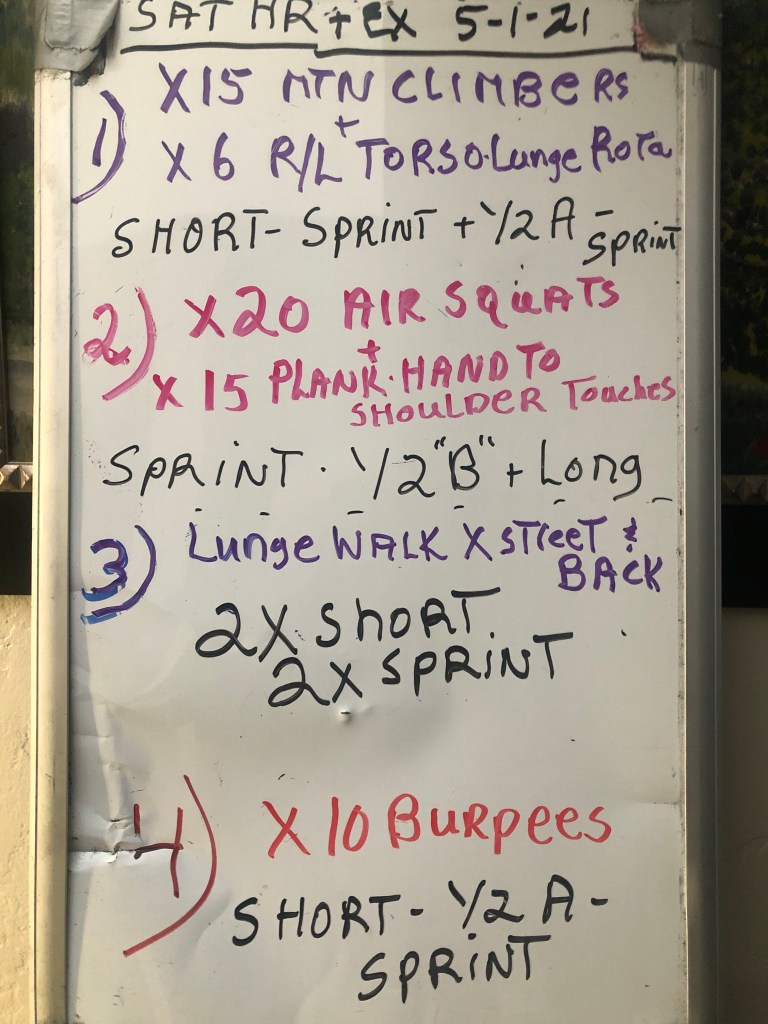 SAT HR + EX 5-1-21
1) X15 MTN CLIMBERS
+
X 6 R/L TORSO·Lunge Rota
SHORT- SPRINT + 1/2 A - SPRINT
2) X20 AIR SQUATS
+
X 15 PLANK·HAND TO
SHOULDER Touches
SPRINT · 1/2 "B" + Long
3) Lunge WALK X STreeT &
BACK
2X SHORT
2X SPRINT
4) X 10 Burpees
SHORT - 1/2 A -
SPRINT